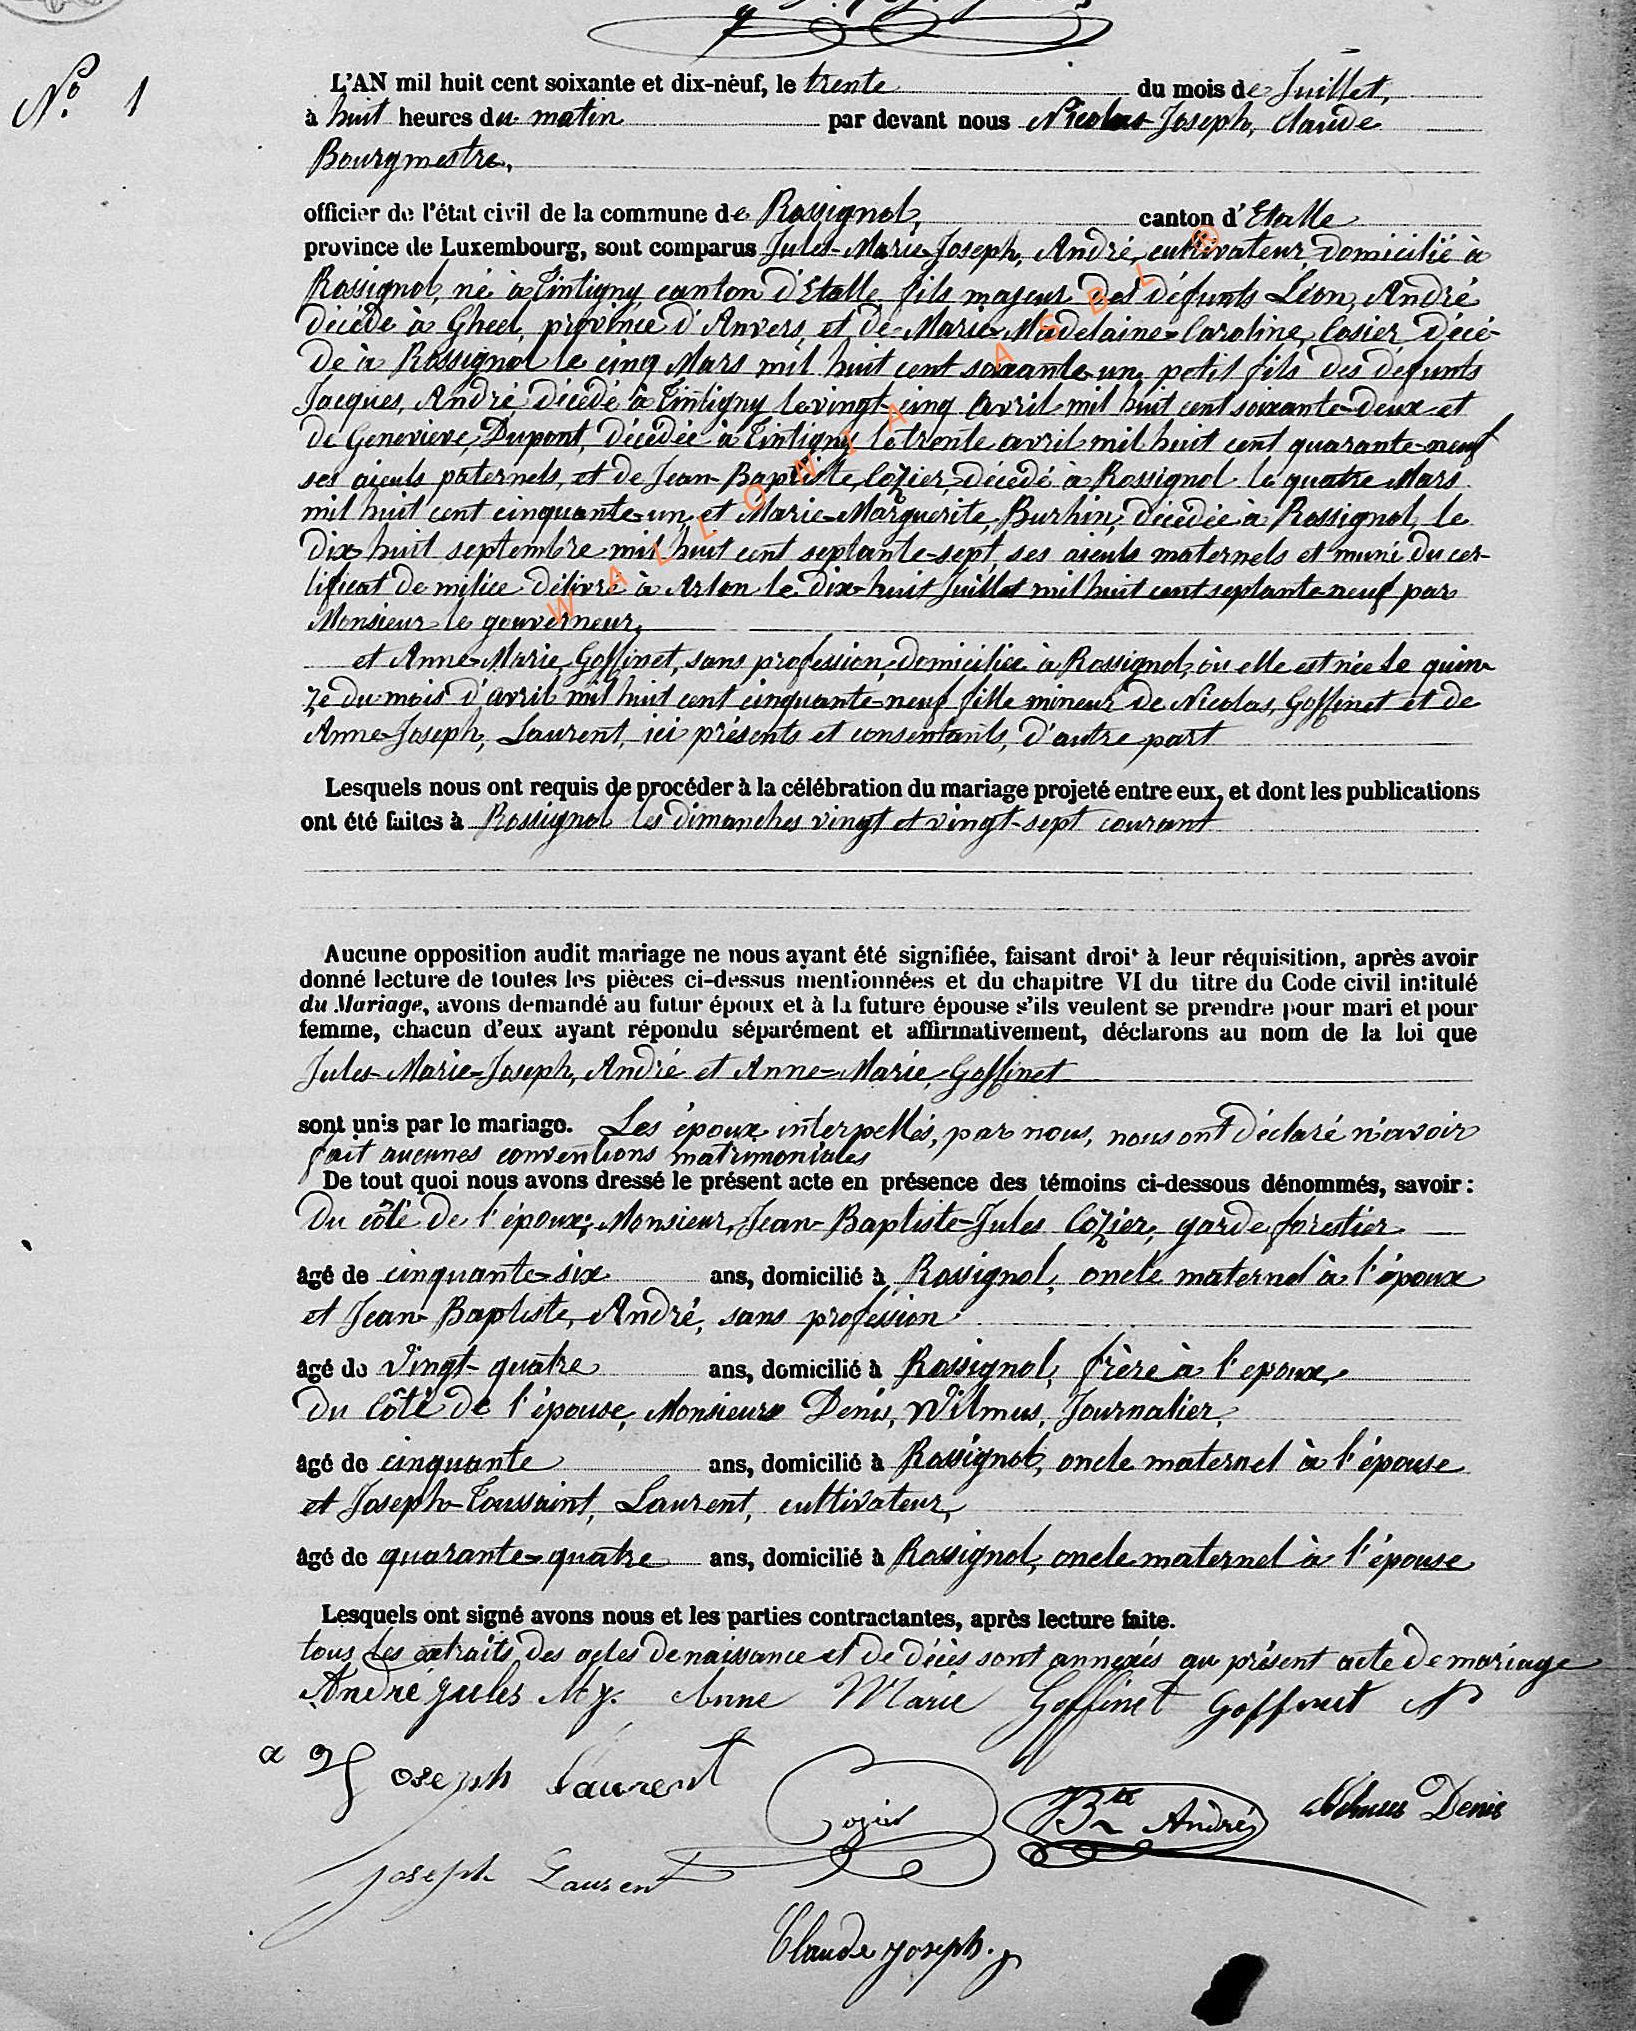 N° 1
L'AN mil huit cent soixante et dix-neuf, le trente du mois de Juillet,
à huit heures du matin par devant nous Nicolas-Joseph, Claude
Bourgmestre,
officier de l'état civil de la commune de Rossignol, canton d'Etalle
province de Luxembourg, sont comparus Jules-Marie-Joseph, André, cultivateur, domicilié à
Rossignol, né à Tintigny canton d'Etalle fils majeur des défunts Léon, André
décédé à Gheel, province d'Anvers, et de Marie-Madelaine-Caroline, Cosier, décé-
dé à Rossignol le cinq Mars mil huit cent soixante-un, petit fils des défunts
Jacques, André, décédé à Tintigny le vingt-cinq Avril mil huit cent soixante-deux et
de Geneviève, Dupont, décédée à Tintigny le trente avril mil huit cent quarante-neuf
ses aieuls paternels, et de Jean-Baptiste, Cozier, décédé à Rossignol le quatre Mars
mil huit cent cinquante-un, et Marie-Marguerite, Burhin, décédée à Rossignol, le
dix-huit septembre mil huit cent septante-sept, ses aieuls maternels et muni du cer-
tificat de milice délivré à Arlon le dix-huit Juillet mil huit cent septante-neuf par
Monsieur le gouverneur,
et Anne-Marie, Goffinet, sans profession, domiciliée à Rossignol, où elle est née le quin-
ze du mois d'avril mil huit cent cinquante-neuf fille mineur de Nicolas, Goffinet et de
Anne-Joseph, Laurent, ici présents et consentants, d'autre part
Lesquels nous ont requis de procéder à la célébration du mariage projeté entre eux, et dont les publications
ont été faites à Rossignol les dimanches vingt et vingt-sept courant
Aucune opposition audit mariage ne nous ayant été signifiée, faisant droit à leur réquisition, après avoir
donné lecture de toutes les pièces ci-dessus mentionnées et du chapitre VI du titre du Code civil intitulé
du Mariage, avons demandé au futur époux et à la future épouse s'ils veulent se prendre pour mari et pour
femme, chacun d'eux ayant répondu séparément et affirmativement, déclarons au nom de la loi que
Jules-Marie-Joseph, André et Anne-Marie, Goffinet
sont unis par le mariage. Les époux interpellés, par nous, nous ont déclaré n'avoir
fait aucunes conventions matrimoniales
De tout quoi nous avons dressé le présent acte en présence des témoins ci-dessous dénommés, savoir :
Du côté de l'époux; Monsieur, Jean-Baptiste-Jules Cozier, garde forestier
âgé de cinquante-six ans, domicilié à Rossignol, oncle maternel à l'époux
et Jean-Baptiste, André, sans profession
âgé de vingt-quatre ans, domicilié à Rossignol, frère à l'époux,
du côté de l'épouse, Monsieur Denis, Wilmus, Journalier,
âgé de cinquante ans, domicilié à Rossignol, oncle maternel à l'épouse
et Joseph-Toussaint, Laurent, cultivateur,
âgé de quarante-quatre ans, domicilié à Rossignol, oncle maternel à l'épouse
Lesquels ont signé avons nous et les parties contractantes, après lecture faite.
tous les extraits des actes de naissance et de décès sont annexés au présent acte de mariage
André Jules M J. Anne Marie Goffinet Goffinet N
a J Joseph Laurent Cozier Bte André Wilmus Denis
Joseph Laurent
Claude Joseph.
WALLONIA ASBL ®